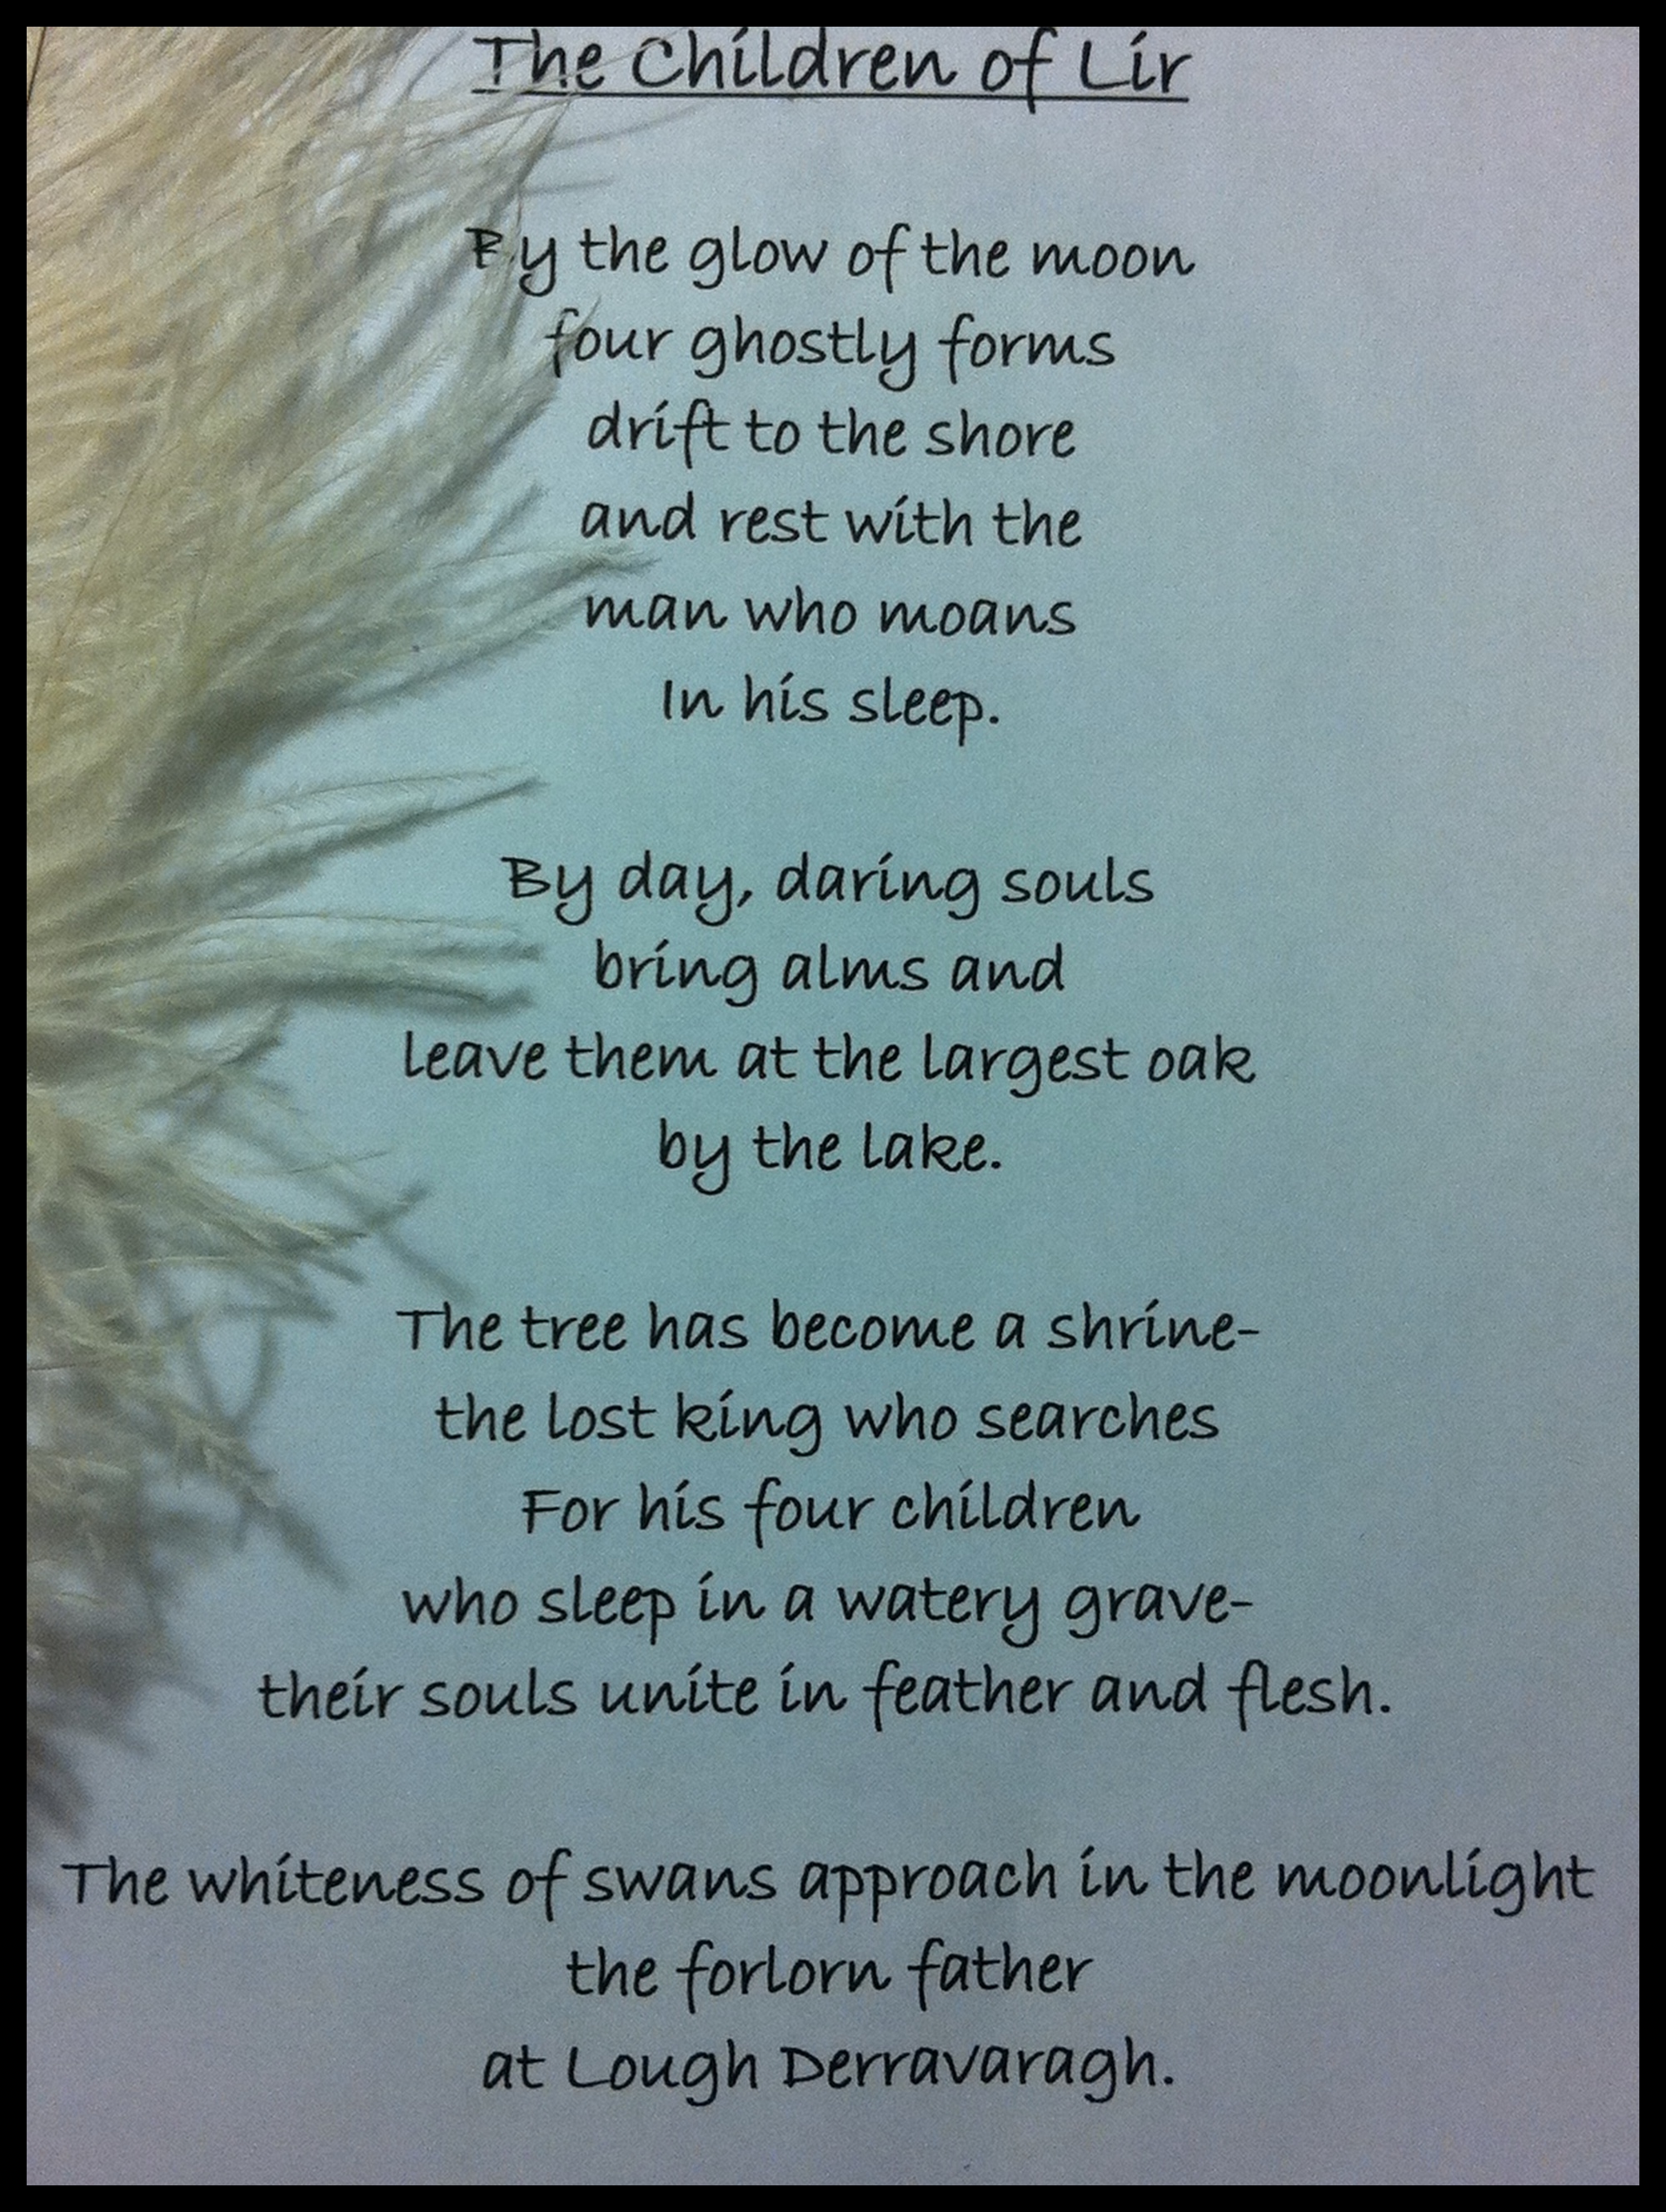 The Children of Lir
By the glow of the moon
four ghostly forms
drift to the shore
and rest with the
man who moans
In his sleep.
By day, daring souls
bring alms and
leave them at the largest oak
by the lake.
The tree has become a shrine-
the lost king who searches
For his four children
who sleep in a watery grave-
their souls unite in feather and flesh.
The whiteness of swans approach in the moonlight
the forlorn father
at Lough Derravaragh.